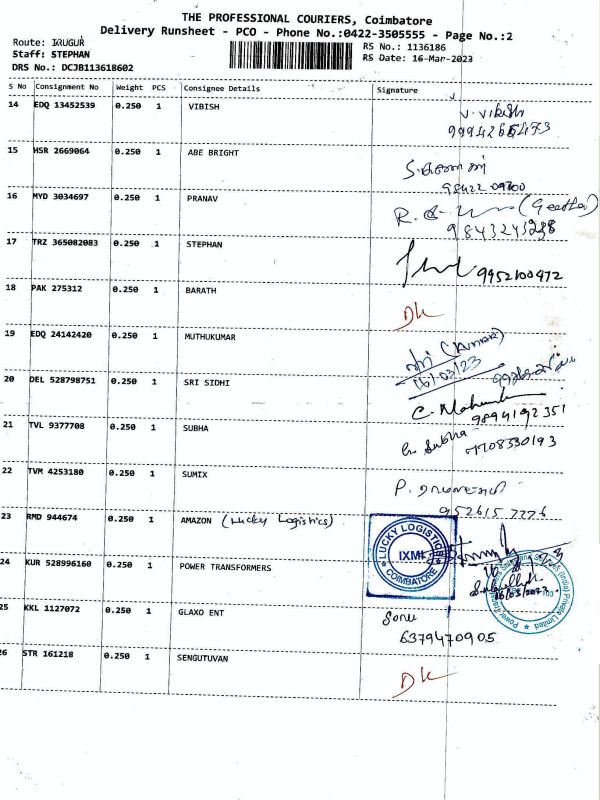 THE PROFESSIONAL COURIERS, Coimbatore
Delivery Runsheet - PCO - Phone No.:0422-3505555 - Page No.:2
Route: IRUGUR
RS No.: 1136186
Staff: STEPHAN
RS Date: 16-Mar-2023
DRS No.: DCJB113618602
S No Consignment No Weight PCS Consignee Details Signature
14 EDQ 13452539 0.250 1 VIBISH
V. Vibish
15 HSR 2669064 0.250 1 ABE BRIGHT
16 MYD 3034697 0.250 1 PRANAV
R. (Geetha)
17 TRZ 365082083 0.250 1 STEPHAN
9952100472
18 PAK 275312 0.250 1 BARATH
DK
19 EDQ 24142420 0.250 1 MUTHUKUMAR
16/03/23
20 DEL 528798751 0.250 1 SRI SIDHI
9894192351
21 TVL 9377708 0.250 1 SUBHA
Subha
22 TVM 4253180 0.250 1 SUMIX
P.
23 RMD 944674 0.250 1 AMAZON (Lucky Logistics)
LUCKY LOGISTICS
IXM
COIMBATORE
24 KUR 528996160 0.250 1 POWER TRANSFORMERS
16/03/2023
(India) Private Limited
25 KKL 1127072 0.250 1 GLAXO ENT
Sonu
6379470905
26 STR 161218 0.250 1 SENGUTUVAN
DK